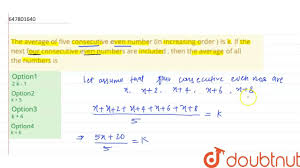 647801640
The average of five consecutive even number (in increasing order ) is k. If the
next four consecutive even numbers are included , then the average of all
the numbers is
Option1
2 k - 1
Option2
k + 5
Option3
k + 4
Option4
k + 6
Let assume that four consecutive even nos are
x, x+2, x+4, x+6, x+8
x+x+2+x+4+x+6+x+8 / 5 = k
⇒ 5x+20 / 5 = k
doubtnut